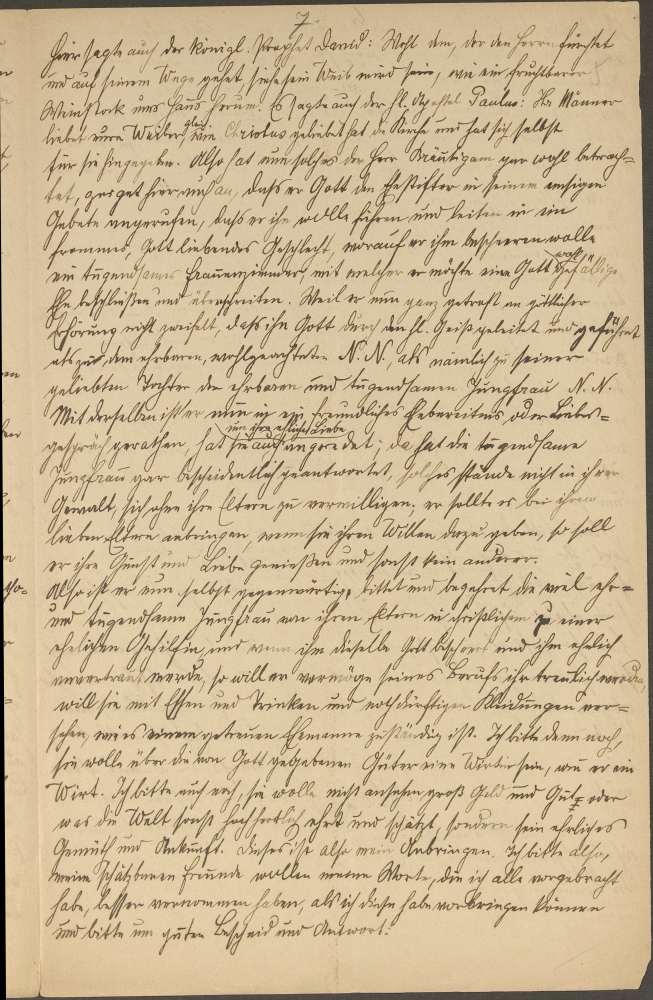 7.
Hier sagte auch der königl. Prophet David: Wohl dem, der den Herrn fürchtet
und auf seinem Wege gehet, siehe sein Weib wird sein, wie ein fruchtbarer
Weinstock ums Haus herum. Es sagte auch der hl. Apostel Paulus: Ihr Männer
liebet eure Weiber, gleich wie Christus geliebet hat die Kirche und hat sich selbst
für sie hingegeben. Also hat nun solches der Herr Bräutigam gar wohl betrach-
tet, zeiget hier auch an, daß er Gott den Ehestifter in seinem emsigen
Gebete angerufen, daß er ihn wolle führen und leiten in ein
frommes, Gott liebendes Geschlecht, worauf er ihm bescheeren wolle
ein tugendsames Frauenzimmer, mit welcher er möchte eine Gott wohlgefällige
Ehe beschließen und überschreiten. Weil er nun ganz getrost an göttlicher
Erhörung nicht zweifelt, daß ihn Gott durch den hl. Geist geleitet und geführet
als zu dem ehrbaren, wohlgeachteten N. N., als nämlich zu seiner
geliebten Tochter der ehrbaren und tugendsamen Jungfrau N. N.
Mit derselben ist er nun in ein freundliches oder Liebes-
gespräch gerathen, hat sie auch um ihre eheliche Liebe angeredet; da hat die tugendsame
Jungfrau gar bescheidentlich geantwortet, solches stände nicht in ihrer
Gewalt, sich ohne ihre Eltern zu verwilligen, er sollte es bei ihren
lieben Eltern anbringen, wenn sie ihren Willen dazu geben, so soll
er ihre Gunst und Liebe genießen und sonst kein anderer.
Also ist er nun selbst gegenwärtig, bittet und begehret die viel ehr-
und tugendsame Jungfrau von ihren Eltern in christlichem zu einer
ehelichen Gehilfin, und wenn ihm dieselbe Gott bescheert und ihm ehelich
anvertraut werde, so will er vermöge seines Berufs ihr treulich werden,
will sie mit Essen und Trinken und nothdürftigen Kleidungen ver-
sehen, wie es einem getreuen Ehemanne zuständig ist. Ich bitte denn noch,
sie wolle über die von Gott gegebenen Güter eine Wirtin sein, wie er ein
Wirt. Ich bitte auch noch, sie wolle nicht ansehen groß Geld und Gut, oder
was die Welt sonst ehrt und schätzt, sondern sein ehrliches
Gemüth und Ankunft. Dieses ist also mein Anbringen. Ich bitte also,
meine schätzbaren Freunde wollen meine Worte, die ich alle vorgebracht
habe, besser vernommen haben, als ich diese habe vorbringen können
und bitte um guten Bescheid und Antwort.